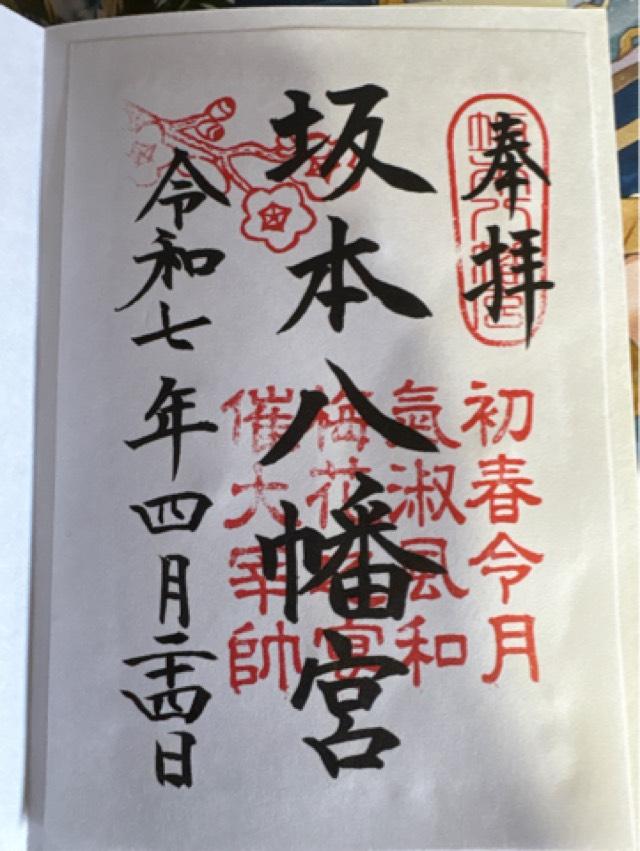 奉拝
初春令月
氣淑風和
坂本八幡宮
梅花宴
催大宰帥
令和七年四月二十四日